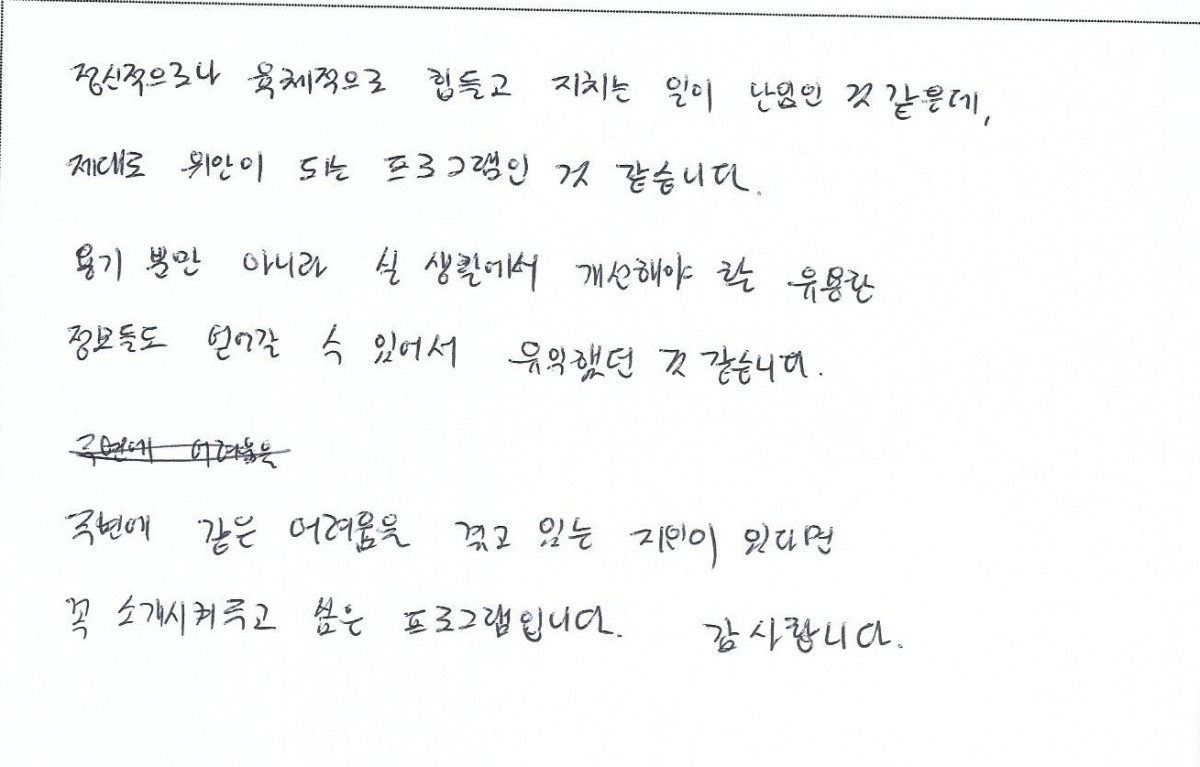 정신적으로나 육체적으로 힘들고 지치는 일이 난임인 것 같은데,
제대로 위안이 되는 프로그램인 것 같습니다.
용기 뿐만 아니라 실 생활에서 개선해야 할 유용한
정보들도 얻어갈 수 있어서 유익했던 것 같습니다.
주변에 어려움을
주변에 같은 어려움을 겪고 있는 지인이 있다면
꼭 소개시켜주고 싶은 프로그램입니다. 감사합니다.